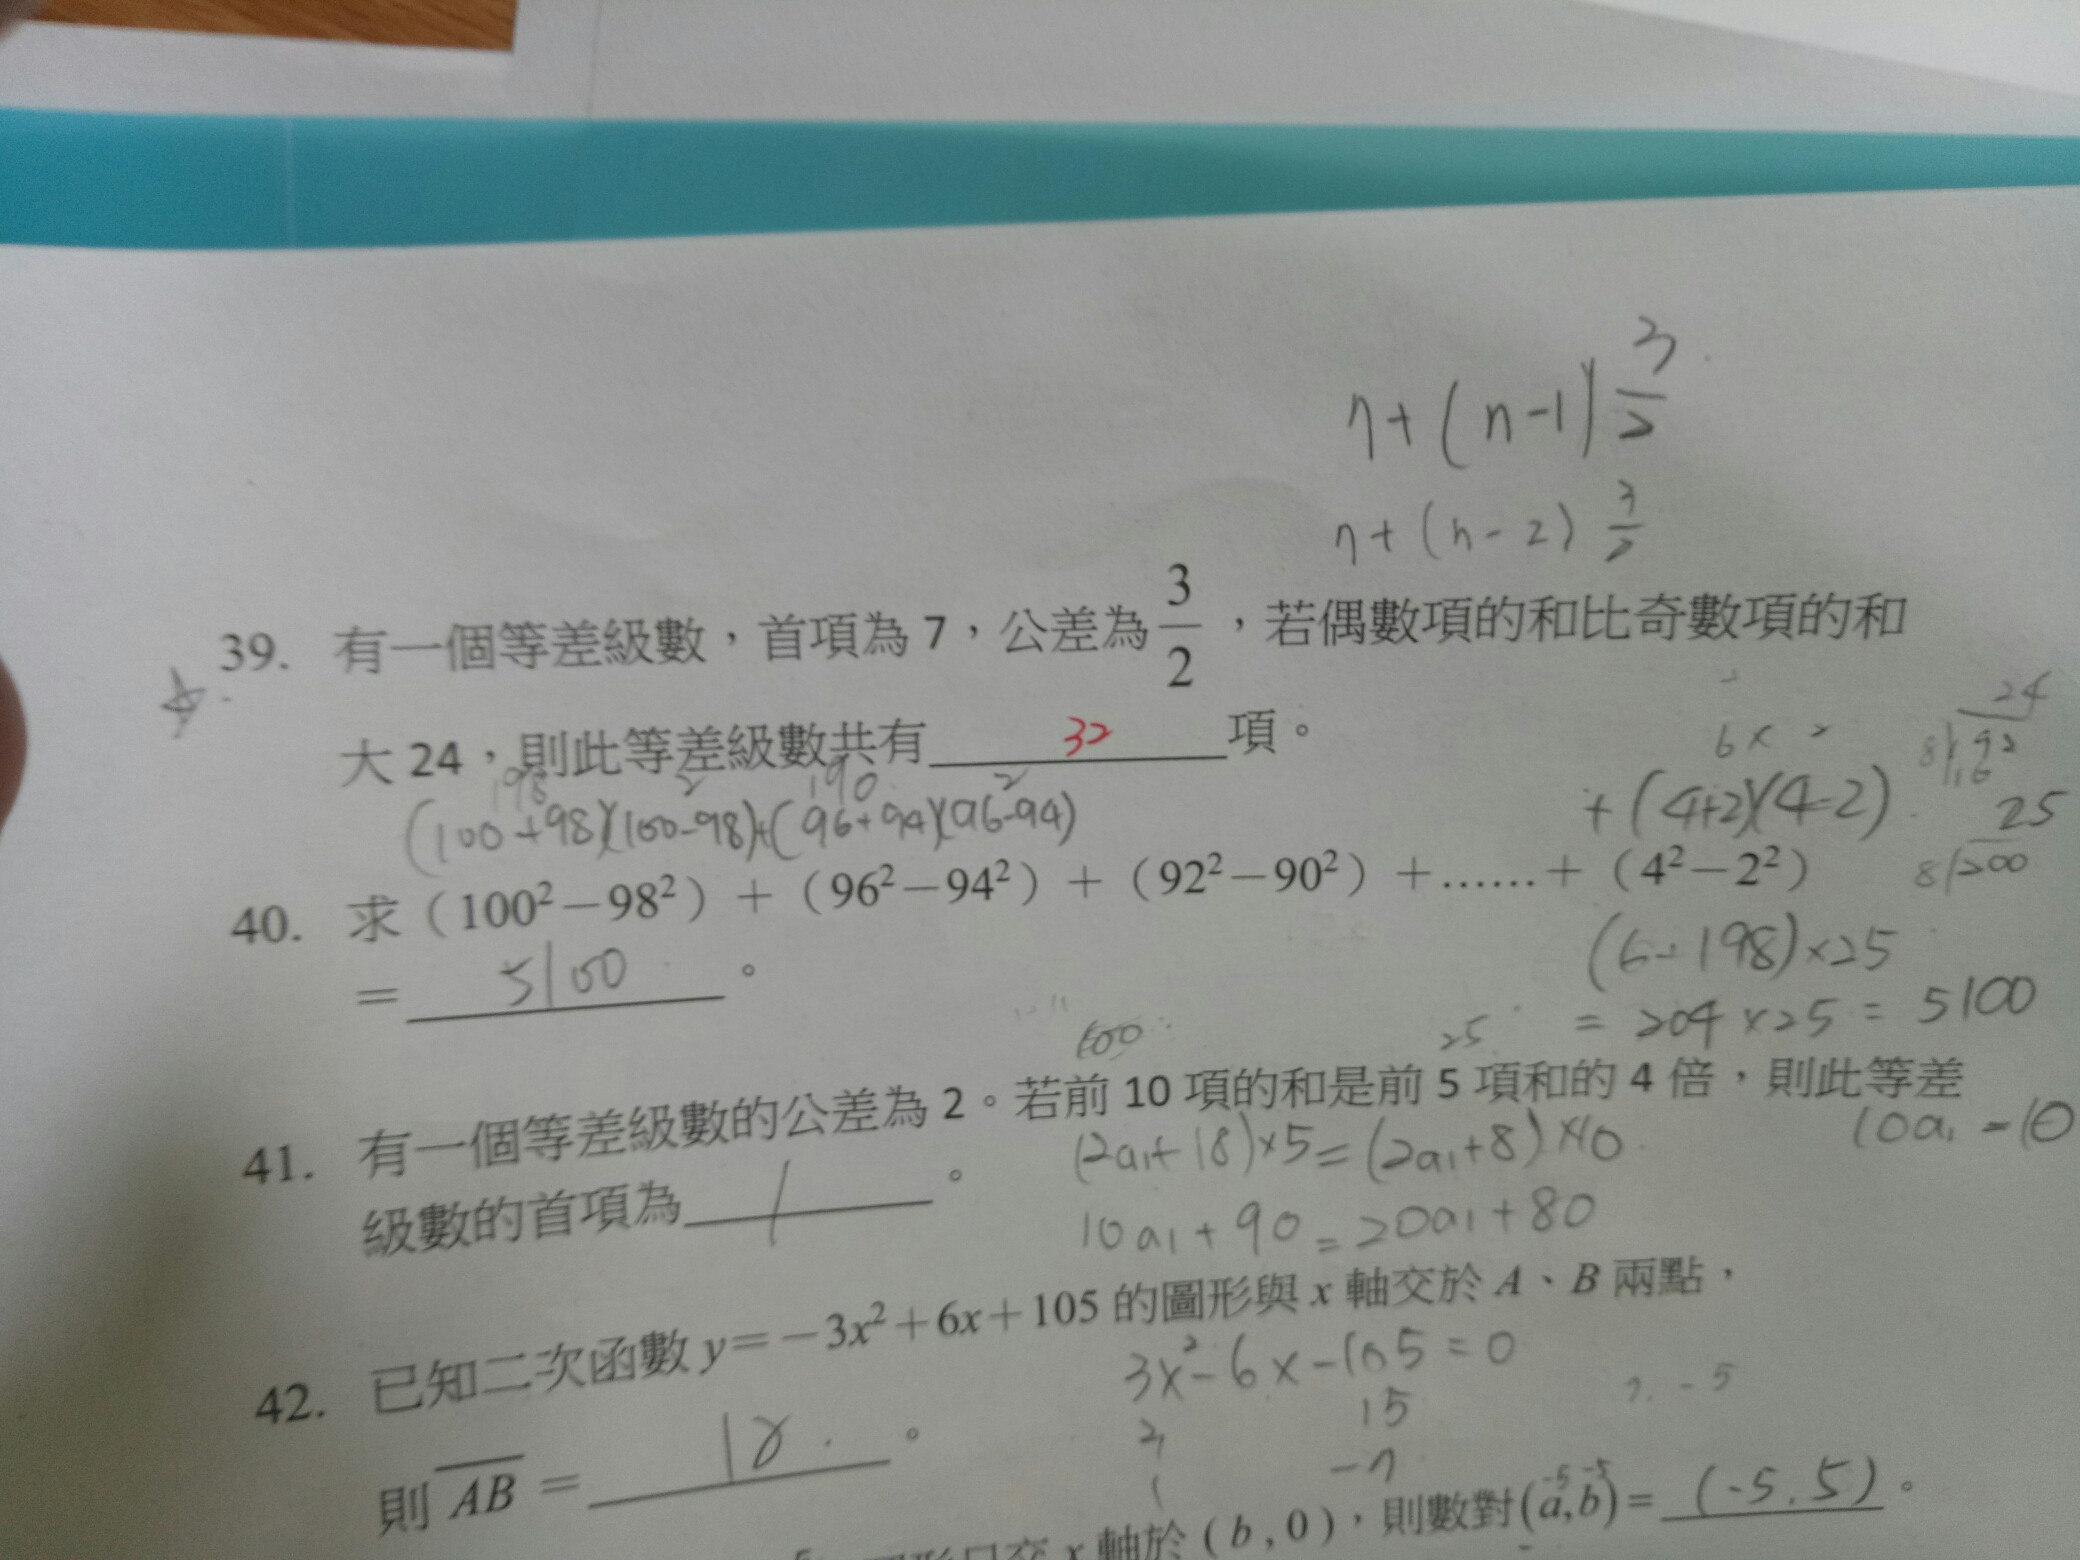 7+(n-1)3/2
7+(n-2)3/2
39. 有一個等差級數，首項為 7，公差為 3/2，若偶數項的和比奇數項的和
大 24，則此等差級數共有 32 項。
198 2 190 2
(100+98)(100-98)+(96+94)(96-94)
6×2
+(4+2)(4-2)
24
8)192
16
25
8)200
40. 求（100²－98²）＋（96²－94²）＋（92²－90²）＋……＋（4²－2²）
＝ 5100 。
(6+198)×25
= 204×25 = 5100
100
25
41. 有一個等差級數的公差為 2。若前 10 項的和是前 5 項和的 4 倍，則此等差
級數的首項為 1 。
(2a₁+18)×5=(2a₁+8)×10
10a₁=10
10a₁+90=20a₁+80
42. 已知二次函數 y＝－3x²＋6x＋105 的圖形與 x 軸交於 A、B 兩點，
則 AB ＝ 18 。
3x²-6x-105=0
3 15
1 -7
7. -5
x 軸於 (b,0)，則數對 (a,b)＝ (-5,5) 。
-5 -5